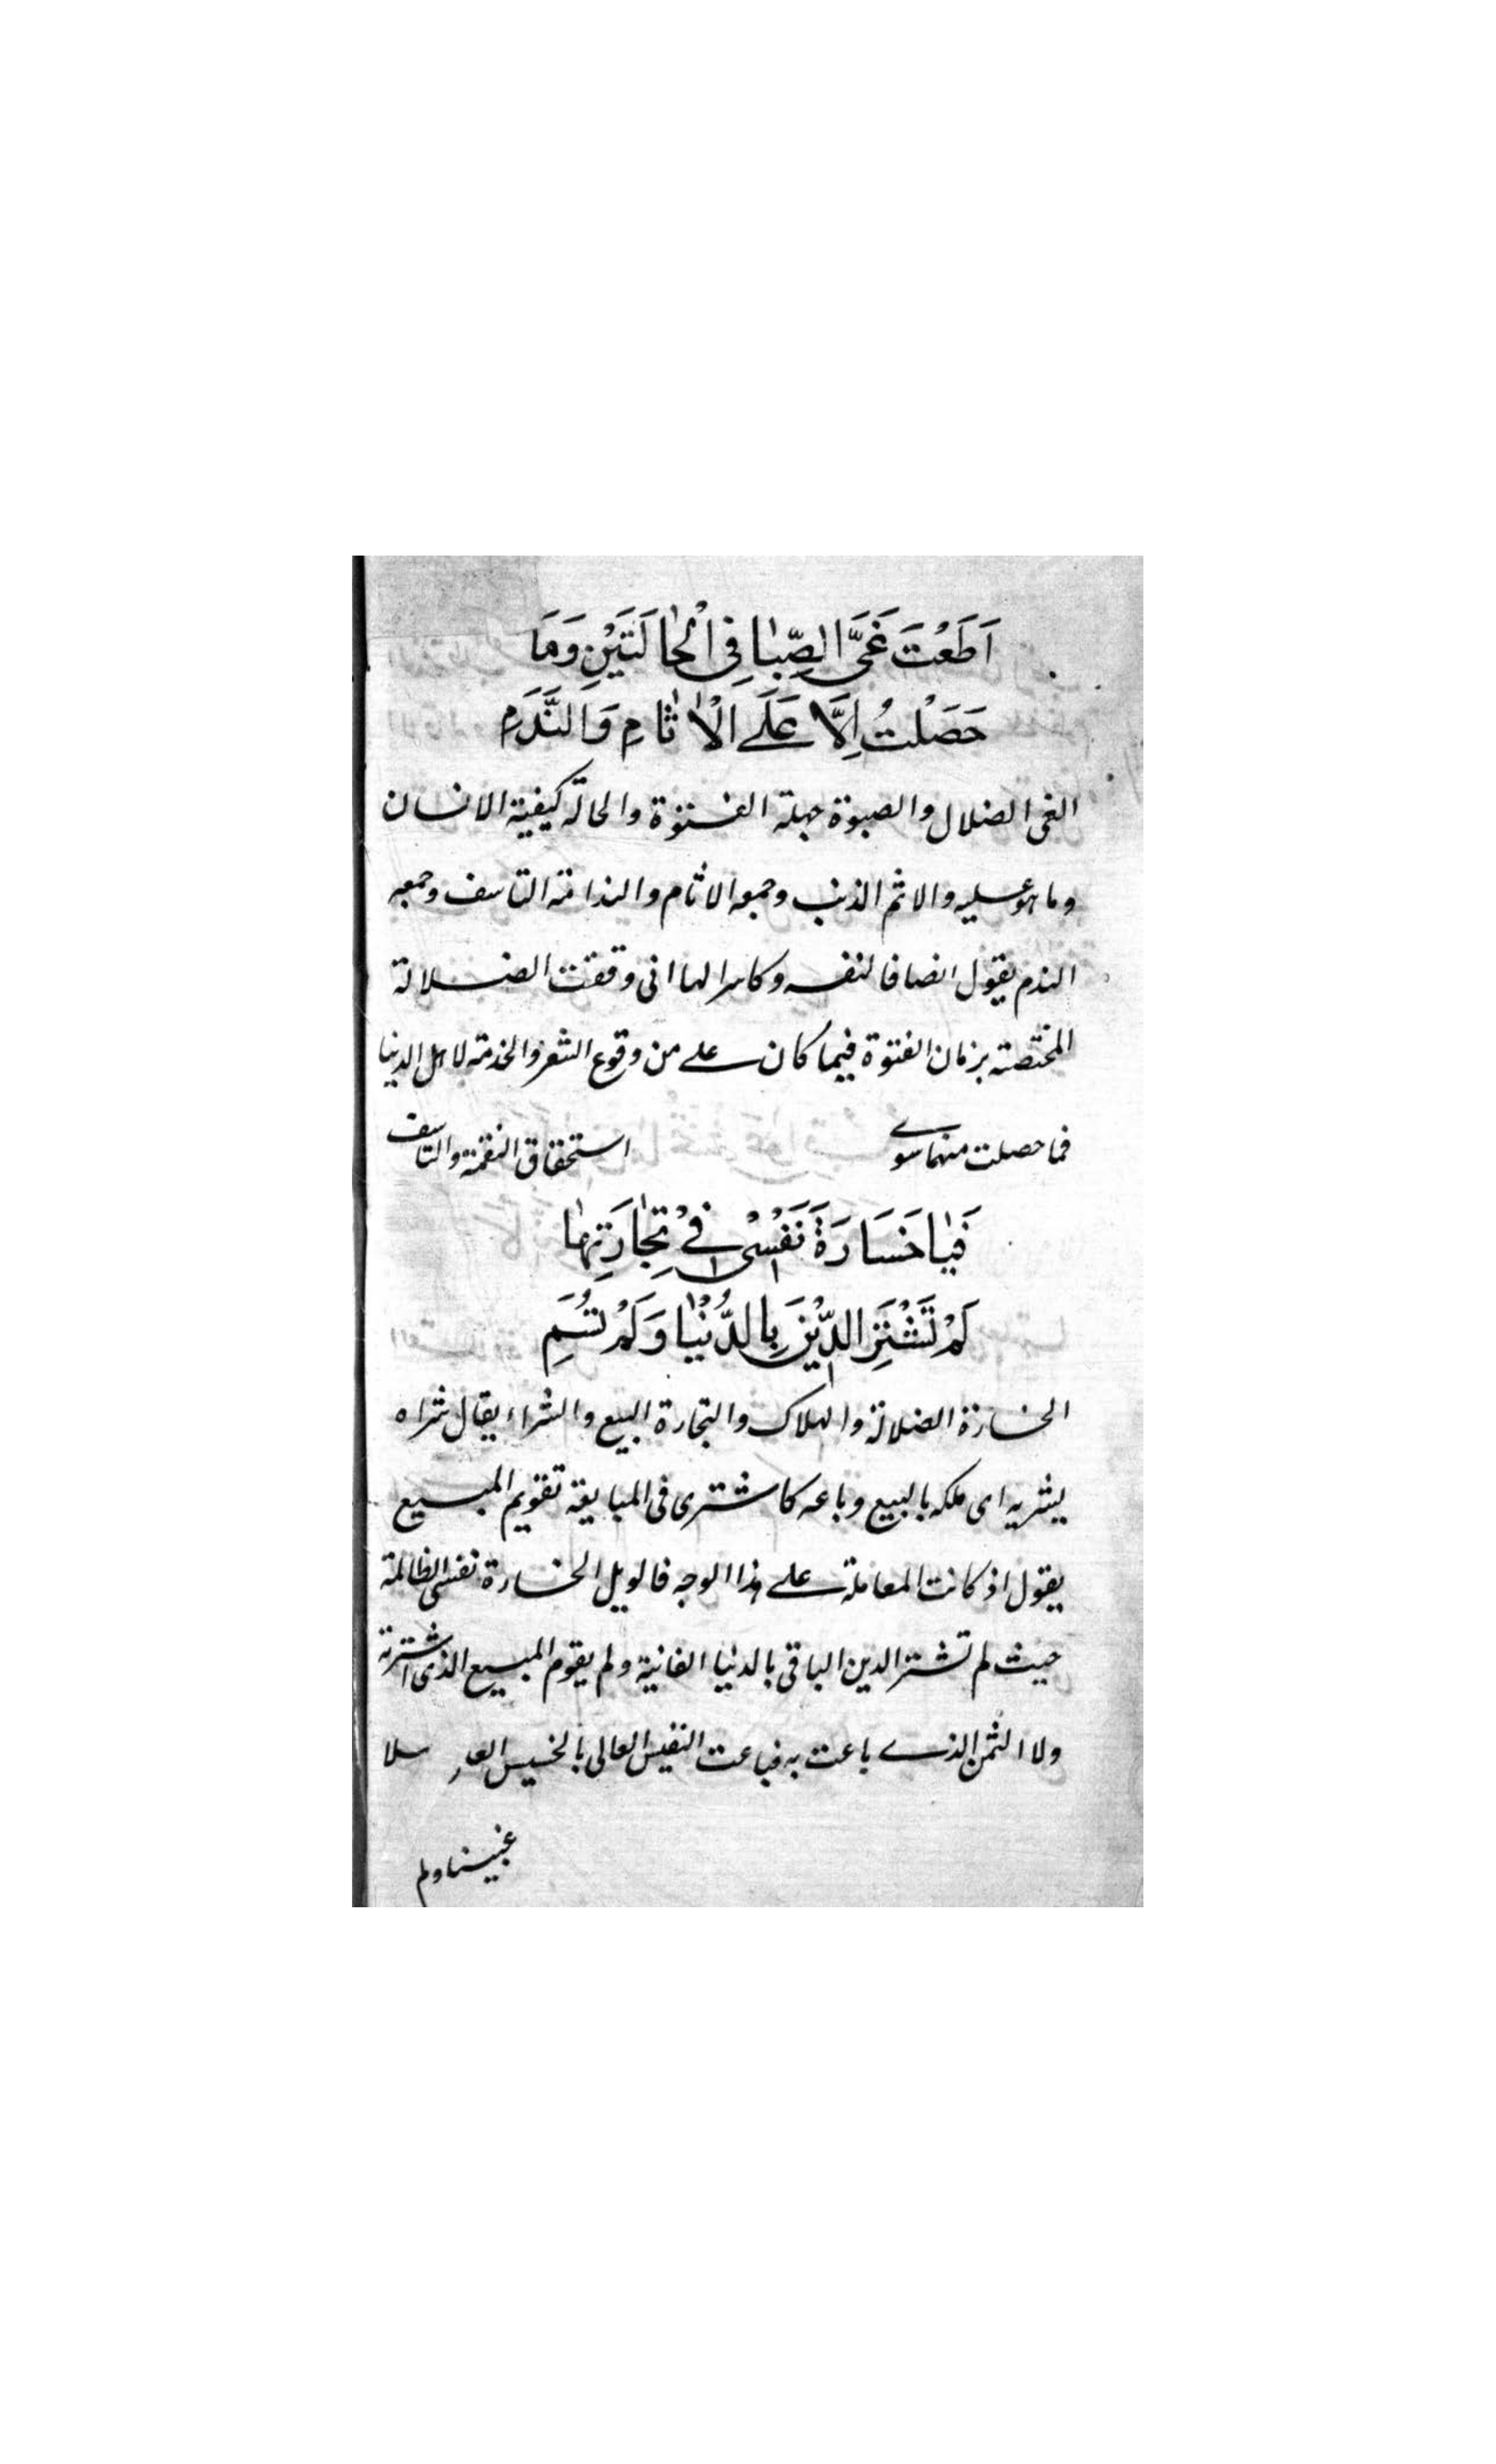 اَطَعْتُ غَىَّ الصِّبَا فِى الْحَالَتَيْنِ وَمَا
حَصَلْتُ اِلَّا عَلَى الْاٰثَامِ وَالنَّدَمِ
الغى الضلال والصبوة جهلة الفتوة والحالة كيفية الانسان
وما هو عليه والاثم الذنب وجمعه الاثام والندامة التاسف وجمعه
الندم يقول انصافا لنفسه وكاسرا لها انى وقفت الضلالة
المختصة بزمان الفتوة فيما كان على من وقوع الشعر والخدمة لاهل الدنيا
فما حصلت منهما سوى استحقاق النقمة والتاسف
فَيَا خَسَارَةَ نَفْسٍى فِى تِجَارَتِهَا
لَمْ تَشْتَرِ الدِّيْنَ بِالدُّنْيَا وَلَمْ تَسُمِ
الخسارة الضلالة والهلاك والتجارة البيع والشراء يقال شراه
يشريه اى ملكه بالبيع وباعه كاشترى فى المبايعة تقويم المبيع
يقول اذ كانت المعاملة على هذا الوجه فالويل الخسارة نفسى الظالمة
حيث لم تشتر الدين الباقى بالدنيا الفانية ولم يقوم المبيع الذى اشترته
ولا الثمن الذى باعت به فباعت النفيس العالى بالخسيس